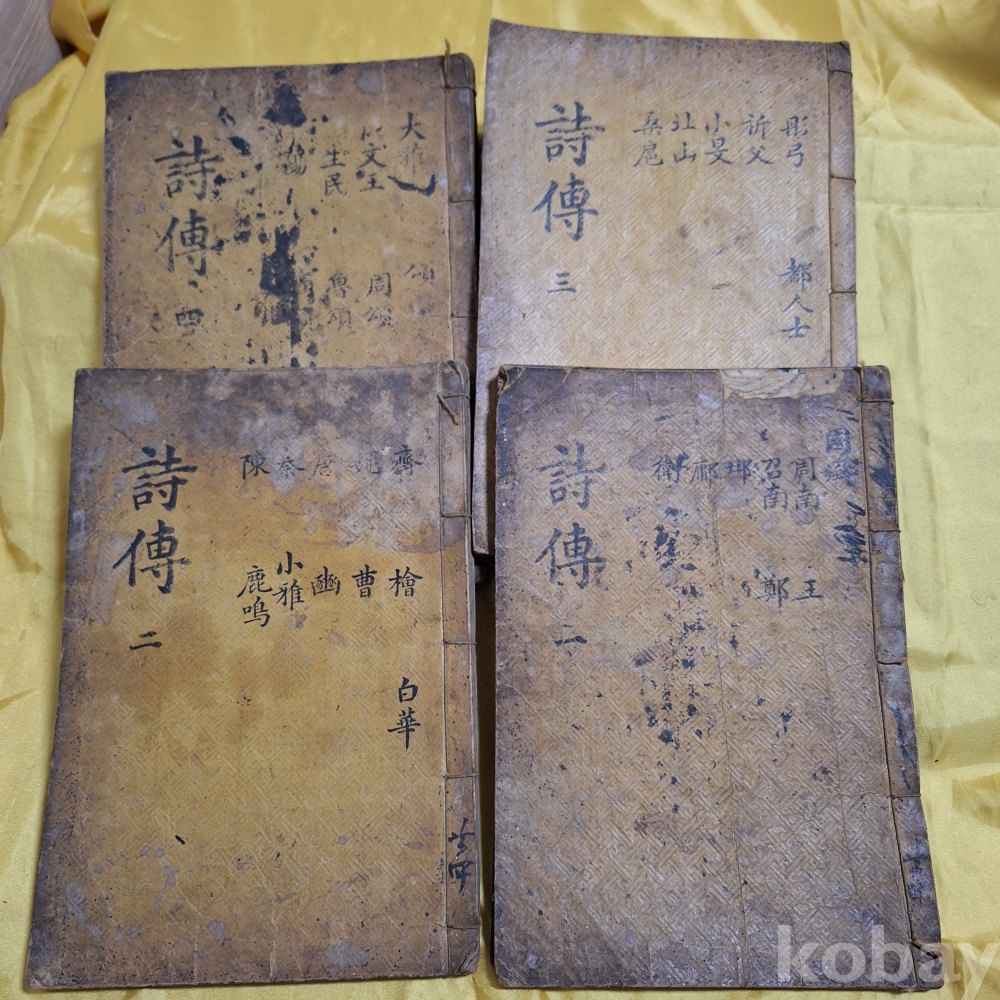 大雅
文王
生民
頌
周頌
魯頌
詩傳
四
彤弓
祈父
小旻
北山
桑扈
都人士
詩傳
三
齊
魏
唐
秦
陳
檜
曹
豳
小雅
鹿鳴
白華
詩傳
二
共四
國風
周南
召南
邶
鄘
衛
王
鄭
詩傳
一
kobay